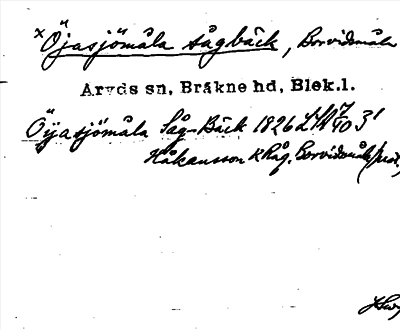 x Öjasjömåla sågbäck, Borvidsmåla
Aryds sn, Bräkne hd, Blek.l.
Öijasjömåla Såg-Bäck 1826 LSA 3'
Håkansson K Råg. Borvidsmåla